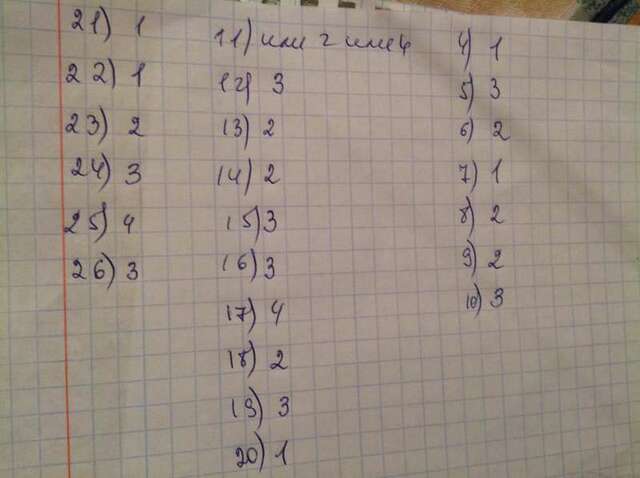 21) 1
22) 1
23) 2
24) 3
25) 4
26) 3
11) или 2 или 4
12) 3
13) 2
14) 2
15) 3
16) 3
17) 4
18) 2
19) 3
20) 1
4) 1
5) 3
6) 2
7) 1
8) 2
9) 2
10) 3